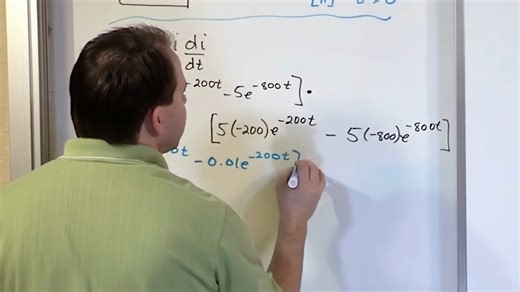 i di
dt
-200t - 5e^-800t].
[5(-200)e^-200t - 5(-800)e^-800t]
t - 0.01e^-200t]